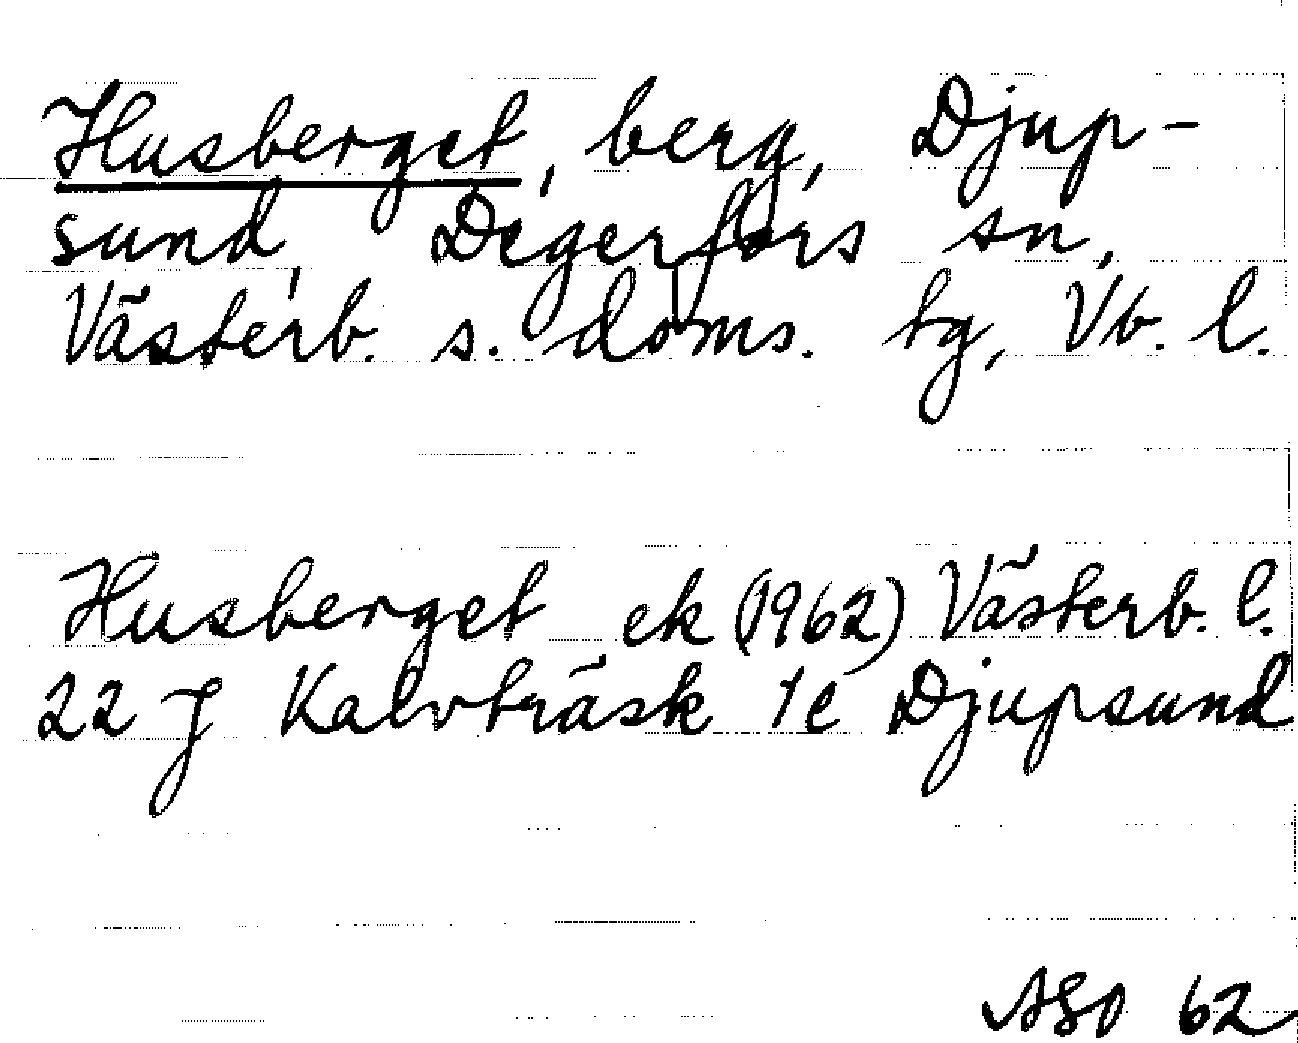 Husberget, berg, Djup-
sund, Degerfors sn,
Västerb. s. doms. tg, Vb. l.
Husberget ek (1962) Västerb. l.
22 J Kalvträsk 1e Djupsund
ASO 62